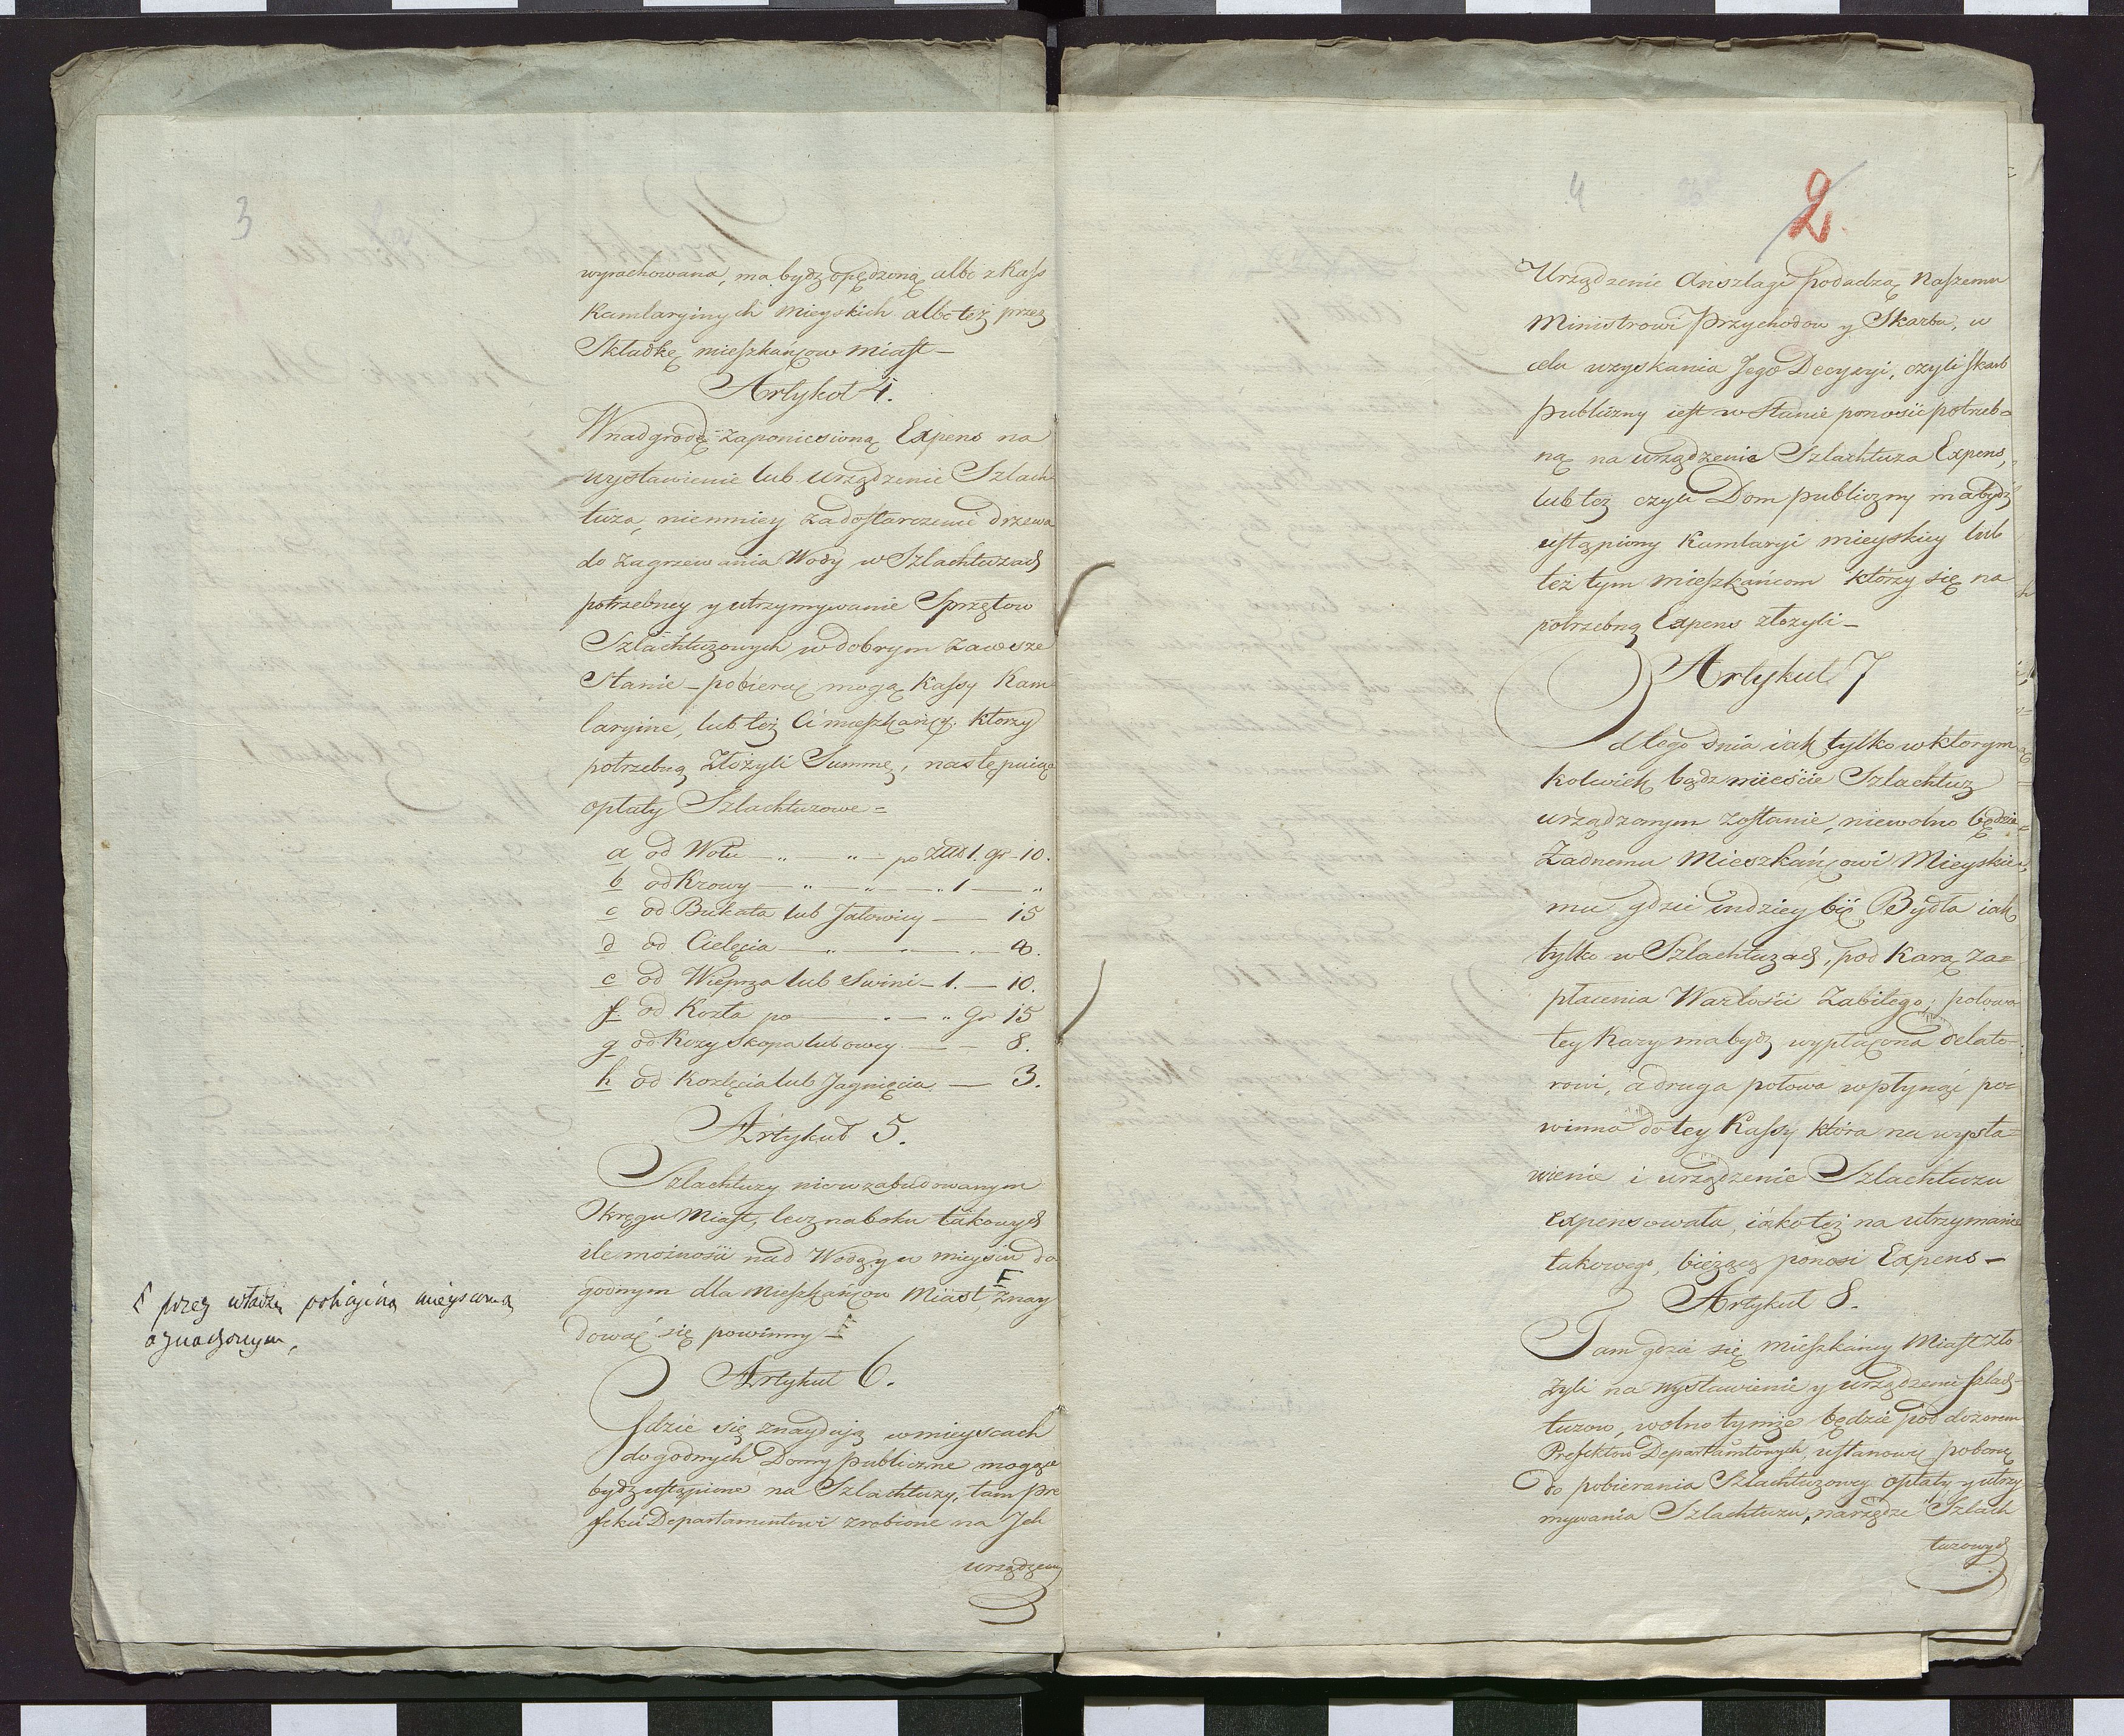 3
wyrachowana, ma bydz opędzoną albo z Kass
Kamlaryinych Mieyskich albo też przez
Składkę mieszkańców Miast –
Artykuł 4.
W nadgrodę zaponiesioną Expens na
wystawienie lub urządzenie Szlach-
tuza, niemniey za dostarczenie drzewa
do zagrzewania Wody w Szlachtuzach
potrzebney y utrzymywanie Sprzętow
Szlachtuzowych w dobrym zawsze
Stanie – pobierać mogą Kassy Kam-
laryine, lub też Ci mieszkańcy, ktorzy
potrzebną złożyli Summę, następuiące
opłaty Szlachtuzowe =
a od Wołu — „ — „ — po Złł 1. gr – 10.
b od Krowy — „ — „ — „ 1 — „
c od Bukata lub Jałowicy — — 15
d od Cielęcia — „ — „ — 8.
e od Wieprza lub Swini – 1. — 10.
f. od Kozła po — „ — „ Gr 15
g od Kozy Skopa lub owcy — — 8.
h od Kozlęcia lub Jagnięcia — 3.
Artykuł 5.
Szlachtuzy nie w zabudowanym
Okręgu Miast, lecz na boku takowych
ile możności nad Wodą y w mieyscu do
godnym dla Mieszkańcow Miast, F znay
dować się powinny –
F przez władzę policyiną mieyscową
oznaczonym,
Artykuł 6.
Gdzie się znayduią w mieyscach
dogodnych Domy publiczne mogące
bydz ustąpione na Szlachtuzy, tam Pre
fekci Departamentowi zrobione na Ich
urządzenie
4
2.
Urządzenie Anszlagi podadzą Naszemu
Ministrowi Przychodow y Skarbu, w
celu uzyskania Jego Decyzyi, czyli skarb
publiczny iest w stanie ponosić potrzeb-
ną na urządzenie Szlachtuza Expens,
lub też czyli Dom publiczny ma bydź
ustąpiony Kamlaryi mieyskiey lub
też tym mieszkańcom którzy się na
potrzebną Expens złożyli –
Artykuł 7
Od tego dnia iak tylko w ktorym
kolwiek bądz mieście Szlachtuz
urządzonym zostanie, niewolno będzie
Zadnemu Mieszkańcowi Mieyskie-
mu gdzie indziey bić Bydła iak
tylko w Szlachtuzach, pod Karą za=
płacenia Wartości Zabitego; połowa
tey Kary ma bydz wypłacona delato-
rowi, a druga połowa wpłynąć po=
winna do tey Kassy która na wysta=
wienie i urządzenie Szlachtuzu
expensowała, iako też na utrzymanie
takowego, bieżącą ponosi Expens –
Artykuł 8.
Tam gdzie się mieszkańcy Miast zło-
żyli na wystawienie y urządzenie szlach-
tuzow, wolno tymże będzie pod dozorem
Prefektow Departamtowych ustanowić poborcę
do pobierania Szlachtuzowey opłaty y utrzy
mywania Szlachtuzu, narzędzi Szlach
tuzowych